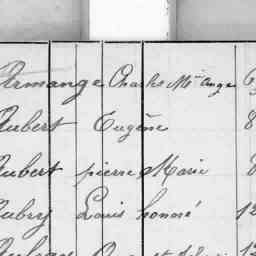 Armange Charles Mie Ange 6
Aubert Eugène 8
Aubert pierre Marie 8
Aubry Louis honoré 12